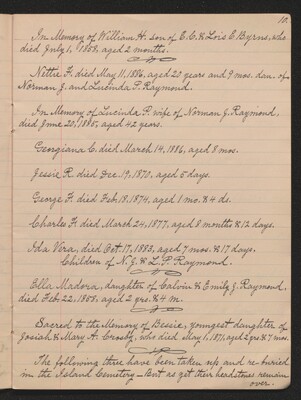 10.
In Memory of William H. son of E. C. & Lois E. Byrns, who
died July 1, 1888, aged 2 months.
Nettie F. died May 11, 1886, aged 20 years and 9 mos. dau. of
Norman J. and Lucinda P. Raymond.
In Memory of Lucinda P. wife of Norman J. Raymond,
died June 20, 1885, aged 42 years.
Georgiana C. died March 14, 1886, aged 8 mos.
Jessie R. died Dec. 19, 1870, aged 5 days.
George F. died Feb. 18, 1874, aged 1 mo. & 4 ds.
Charles F. died March 24, 1877, aged 8 months & 12 days.
Ida Vera, died Oct. 17, 1883, aged 7 mos. & 17 days.
Children of N. J. & L. P. Raymond.
Ella Madora, daughter of Calvin & Emily J. Raymond,
died Feb. 22, 1858, aged 2 yrs. & 4 m.
Sacred to the Memory of Bessie, youngest daughter of
Josiah & Mary A. Crosby, who died May 1, 1871, aged 2 yrs. & 7 mos.
The following three have been taken up and re-buried
in the Island Cemetery - But as yet their headstones remain
over.